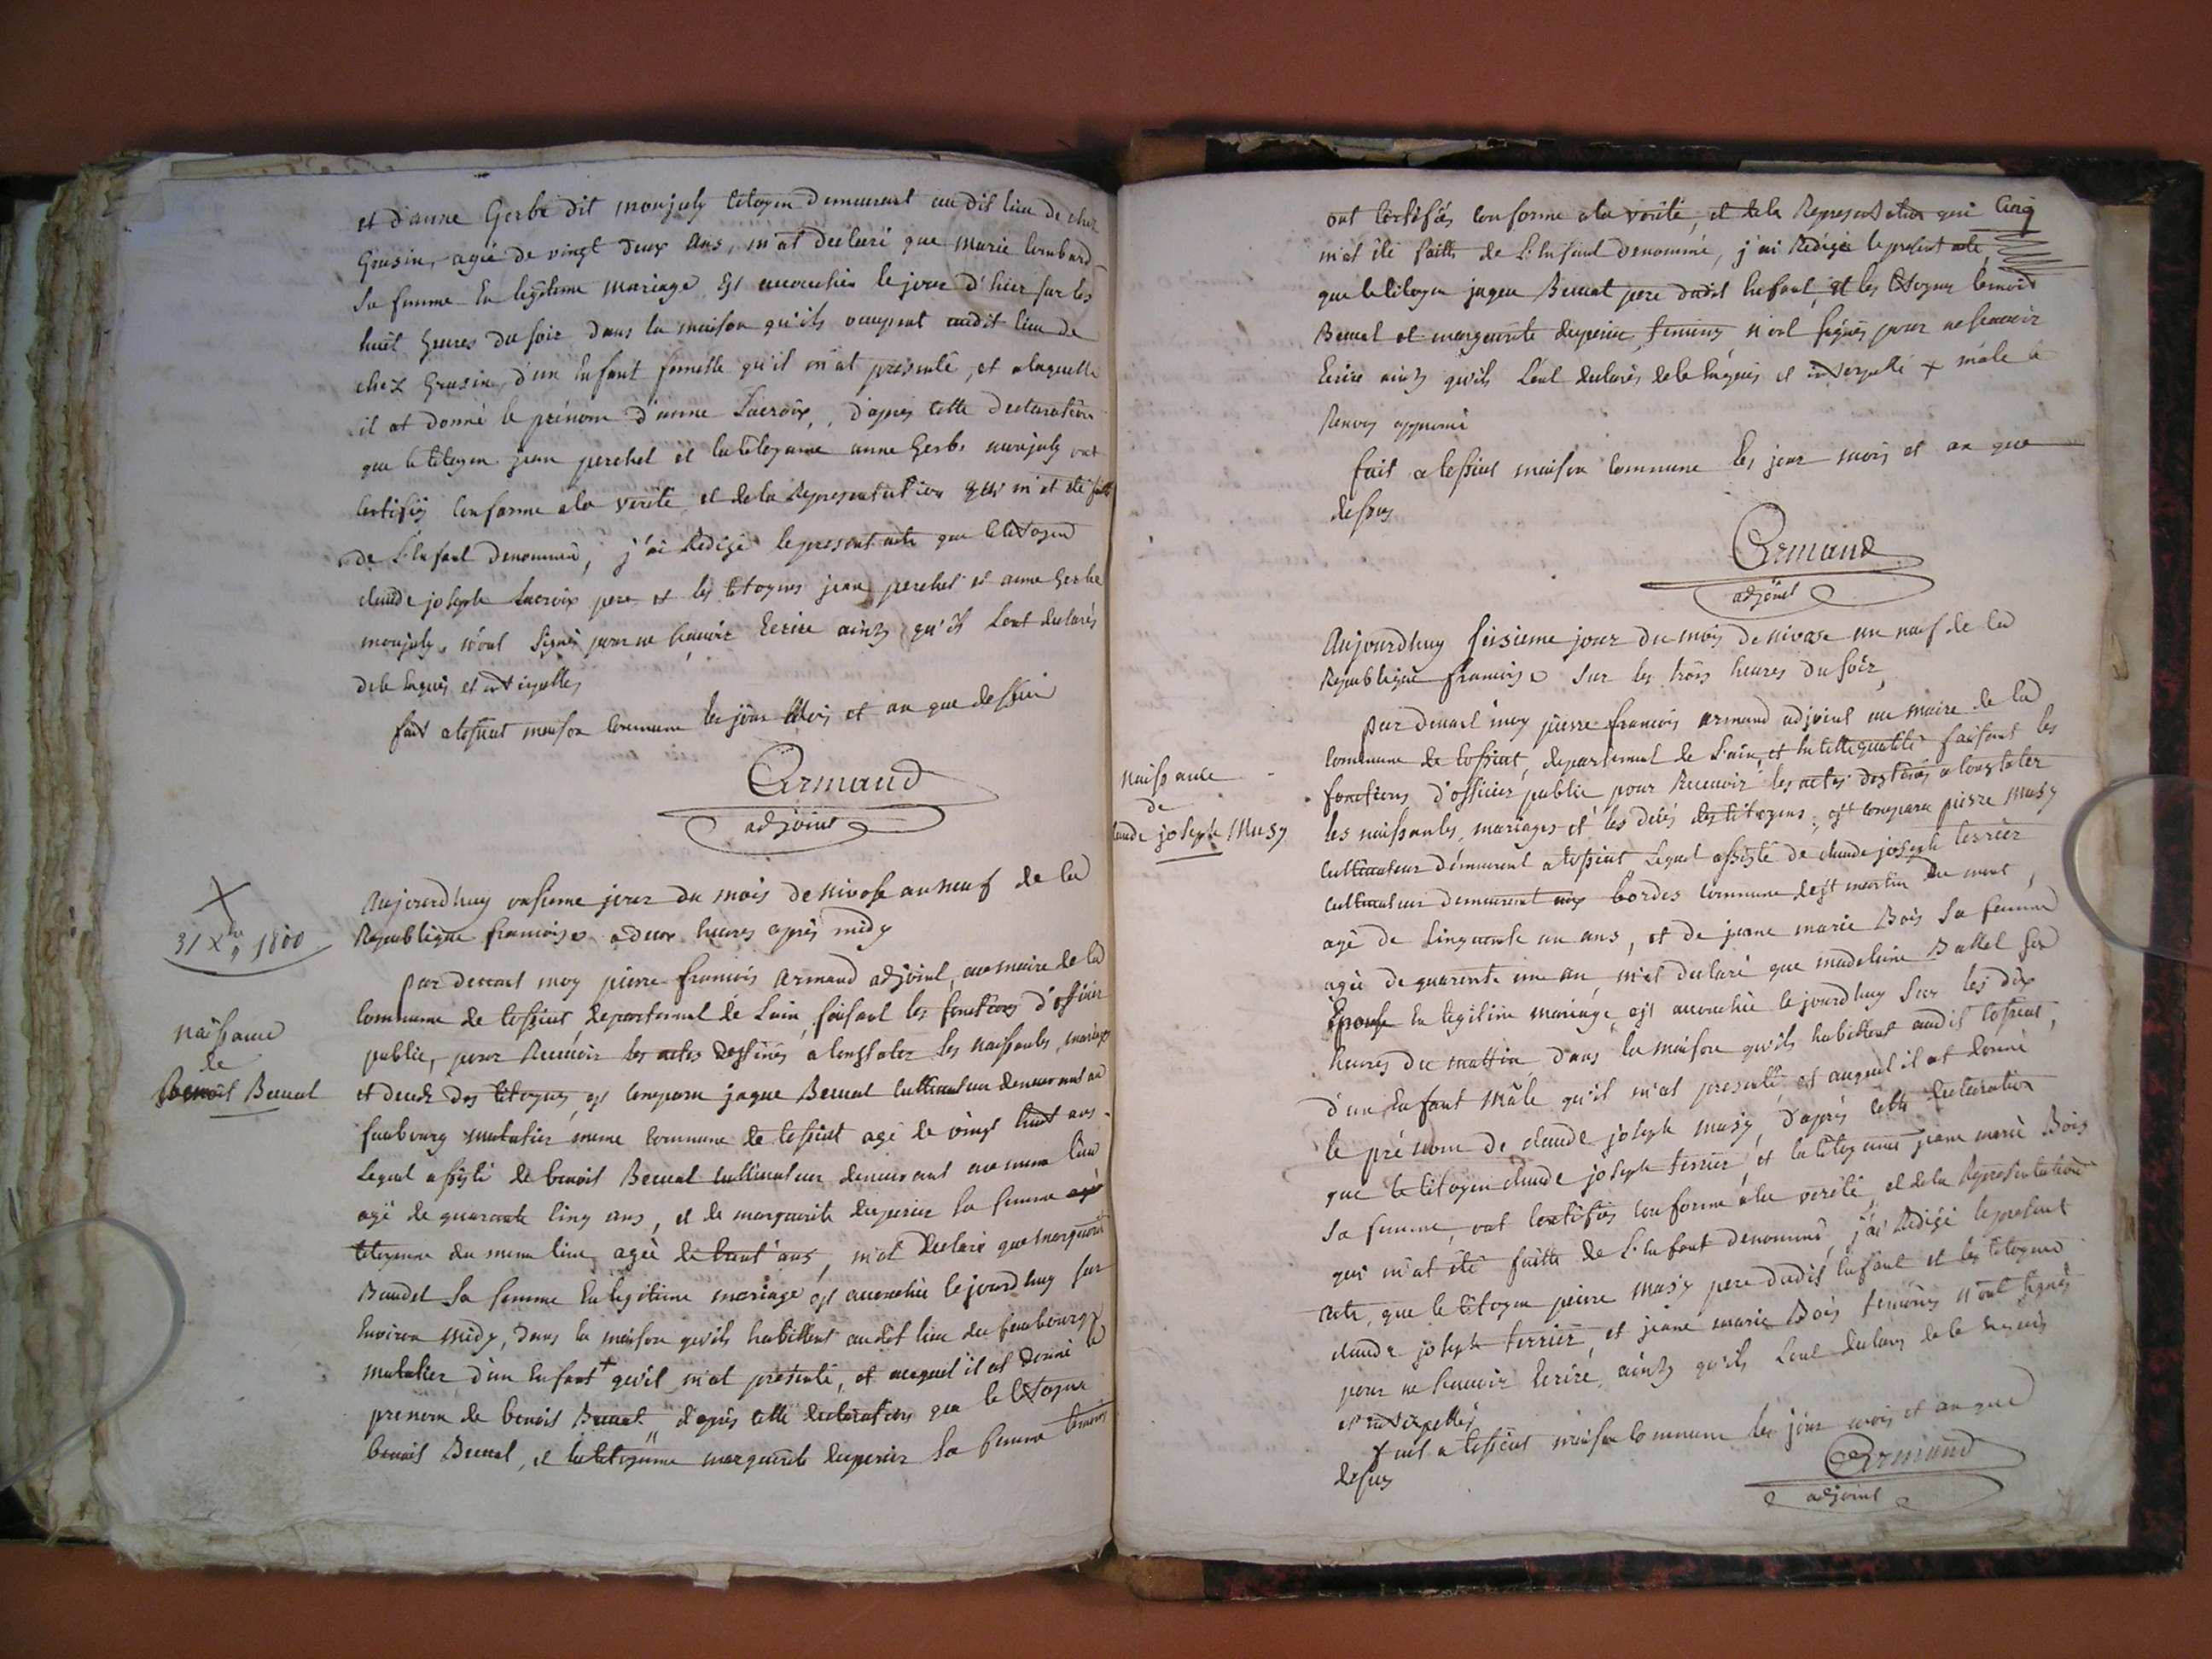 et d'anne Gerbe dit monjuly citoyen demeurant au dit lieu de chez
Grusin, agée de vingt deux ans, m'at declaré que Marie Lombard
sa femme En legitime mariage Est accouchée le jour d'hier sur les
huit heures du soir dans la maison qu'ils occupent audit lieu de
chez Grusin, d'un Enfant femelle qu'il m'at présenté, et alaquelle
il at donné le prénom d'anne Lacroix, d'apres cette declaration
que le citoyen jean perchet et la citoyenne anne Gerbe monjuly ont
certifiés conforme ala verité et de la Representation qui m'at été faitte
de L'Enfant denommé, j'ai Redigé le present acte que le citoyen
claude joseph Lacroix pere et les citoyens jean perchet et anne Gerbe
monjuly n'ont signé pour ne sçavoir Ecrire ainsy qu'ils L'ont declarés
de ce Enquis et interpellés
fait a tossiat maison commune les jour Mois et an que dessus
Armand
adjoint
X
31 Xbre 1800
naissance
de
Benoit Beccat
Aujourdhuy onsieme jour du mois de nivose an neuf de la
Republique francoise a deux heures après midy
par devant moy pierre francois Armand adjoint au maire de la
commune de tossiat departement de L'ain, faisant les fonctions d'officier
public, pour Recevoir les actes destinés a constater les naissances, mariages
et decés des citoyens, est comparu jaque Beccat cultivateur demeurant au
faubourg mutatier meme commune de tossiat agé de vingt huit ans
Lequel assisté de benoit Beccat cultivateur demeurant au meme lieu
agé de quarante cinq ans, et de marguerite duperier sa femme
citoyenne du meme lieu agée de trent'ans, m'at declaré que marguerite
Baudet sa femme En legitime mariage est accouchée le jourdhuy sur
Environ midy, dans la maison qu'ils habittent audit lieu du faubourg
mutatier d'un Enfant + qu'il m'at présenté, et auquel il at donné le
prenom de benoit Beccat d'après cette declaration que le citoyen
benoit Beccat, et la citoyenne marguerite duperier sa femme temoins
ont certifiés conforme ala verité, et de la Representation qui Cinq
m'at été faitte de L'Enfant denommé, j'ai Redigé le present acte
que le citoyen jaque Beccat pere dudit Enfant, et les citoyens benoit
Beccat et marguerite duperier, temoins n'ont signés pour ne sçavoir
Ecrire ainsy qu'ils L'ont declarés de ce Enquis et interpellé + mâle le
Renvoy approuvé
fait a tossiat maison commune les jour mois et an que
dessus
Armand
adjoint
naissance
de
claude joseph Musy
Aujourdhuy seisieme jour du mois de nivose an neuf de la
Republique francoise sur les trois heures du soir
par devant moy pierre francois Armand adjoint au maire de la
commune de tossiat, departement de L'ain, et En cette qualité faisant les
fonctions d'officier public pour Recevoir les actes destinés a constater
les naissances, mariages et les decés des citoyens, est comparu pierre Musy
cultivateur démeurant a tossiat Lequel assisté de claude joseph terrier
cultivateur demeurant aux bordes commune de st martin du mont,
agé de cinquante un ans, et de jeane marie Bois sa femme
agée de quarente un an, m'at declaré que madeleine Ballet son
Epouse En legitime mariage est accouchée le jourdhuy sur les dix
heures du mattin dans la maison qu'ils habittent audit tossiat,
d'un Enfant Mâle qu'il m'at presenté et auquel il at donné
le prénom de claude joseph Musy, d'après cette declaration
que le citoyen claude joseph terrier et la citoyenne jeane marie Bois
sa femme, ont certifiés conforme à la verité et de la Representation
qui m'at été faitte de L'Enfant denommé, j'ai Redigé le present
acte, que le citoyen pierre Musy pere dudit Enfant et les citoyens
claude joseph terrier, et jeane marie Bois temoins n'ont signés
pour ne sçavoir Ecrire, ainsy qu'ils L'ont declaré de ce Enquis
et interpellés
fait a tossiat maison commune les jour mois et an que
dessus
Armand
adjoint